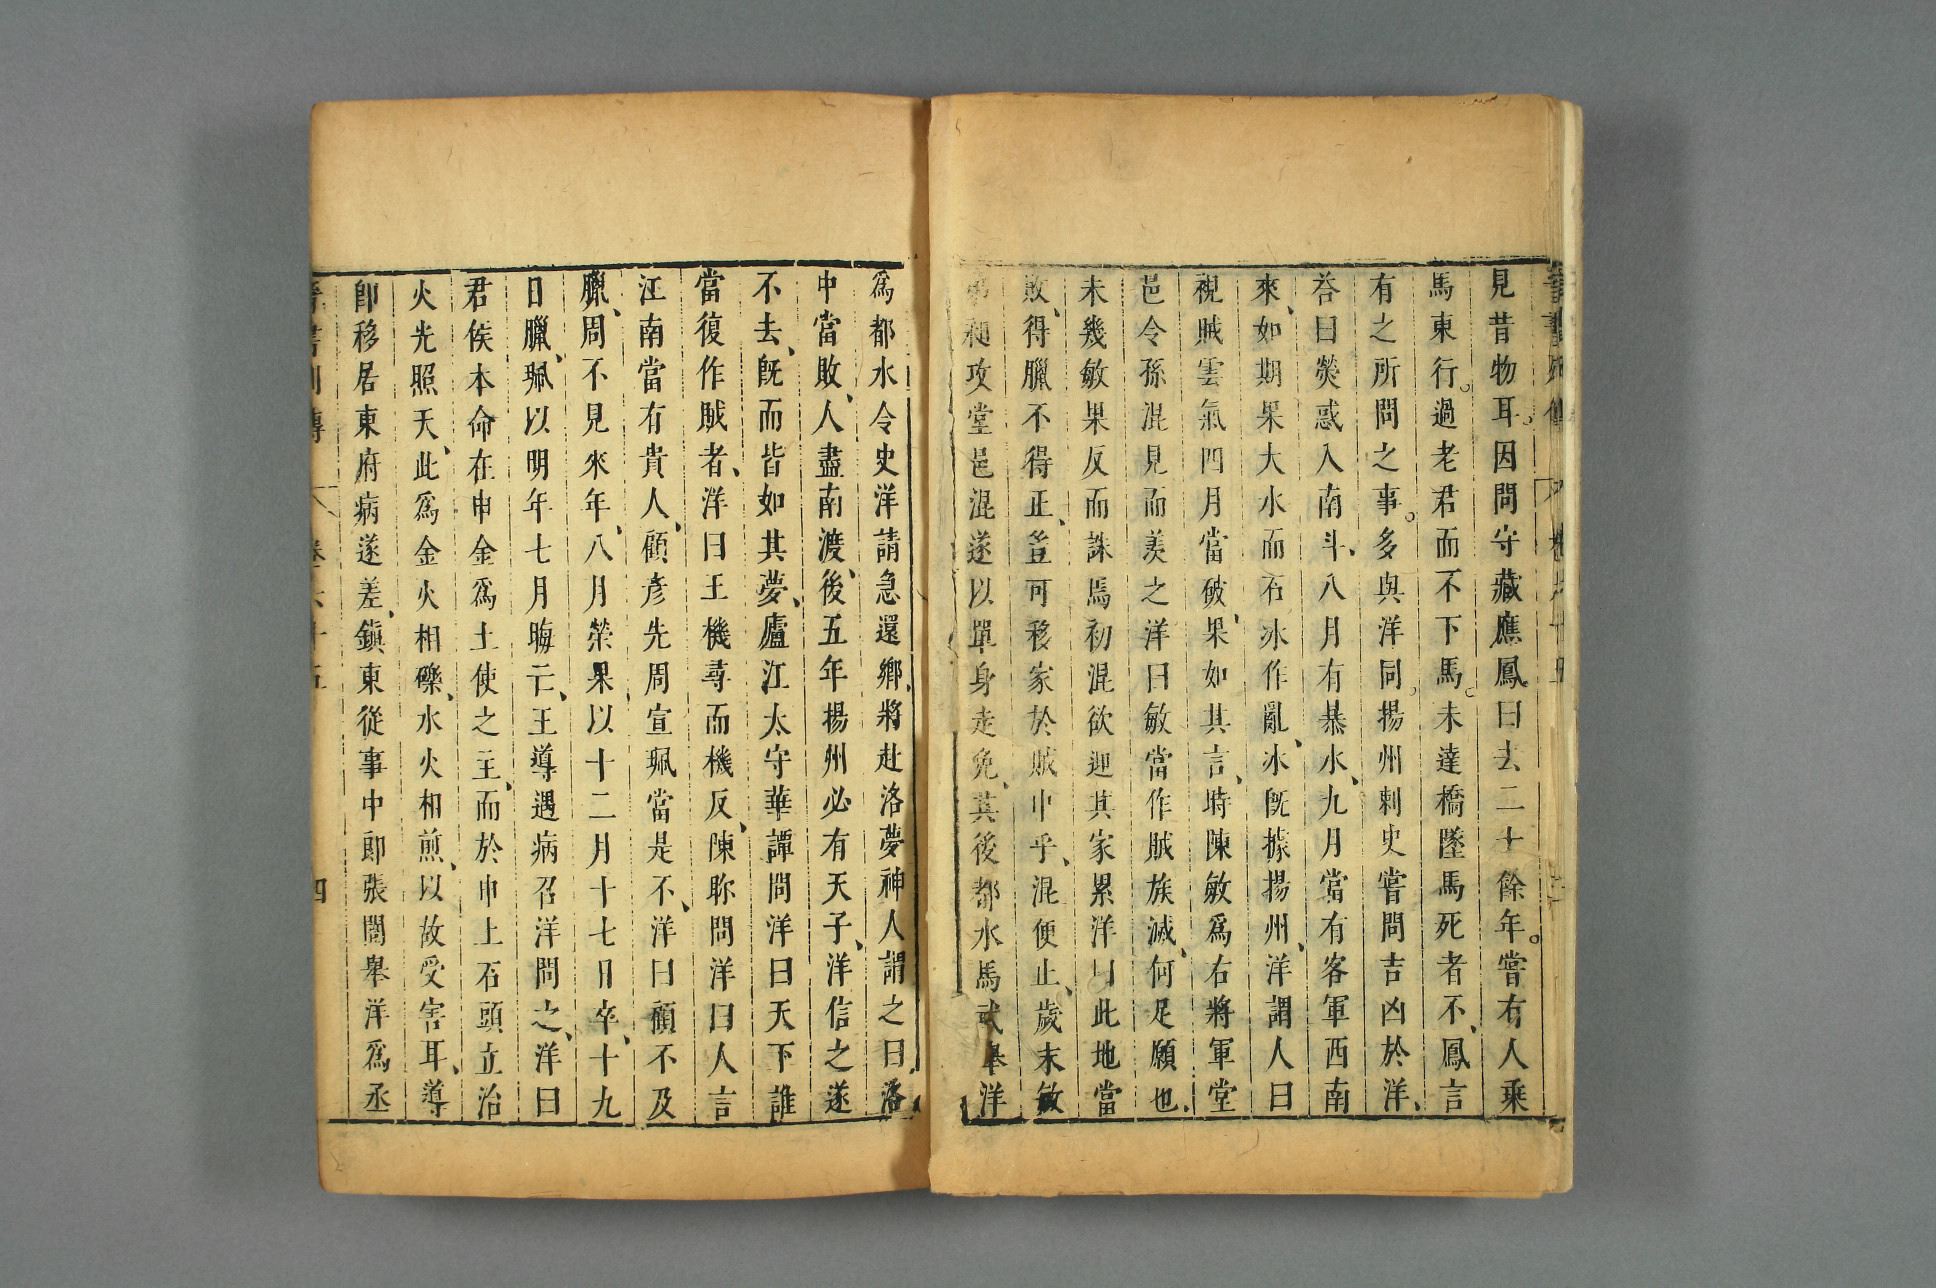 見昔物耳。因問守藏應鳳。曰去二十餘年。嘗有人乘
馬東行。過老君而不下馬。未達橋墜馬死者不、鳳言
有之所問之事。多與洋同。揚州刺史嘗問吉凶於洋、
荅曰熒惑入南斗、八月有暴水、九月當有客軍西南
來、如期果大水而石冰作亂、冰旣據揚州、洋謂人曰
視賊雲氣四月當破、果如其言、時陳敏爲右將軍堂
邑令孫混見而羨之洋曰敏當作賊族滅、何足願也、
未幾敏果反而誅焉初混欲迎其家累洋曰此地當
敗、得臘不得正、豈可移家於賊中乎、混便止、歲末敏
弟昶攻堂邑混遂以單身走免、其後都水馬武舉洋
爲都水令史洋請急還鄉、將赴洛夢神人謂之曰洛
中當敗、人盡南渡、後五年揚州必有天子、洋信之遂
不去、旣而皆如其夢、廬江太守華譚問洋曰天下誰
當復作賊者、洋曰王機尋而機反、陳眕問洋曰人言
江南當有貴人、顧彥先周宣珮當是不、洋曰顧不及
臘、周不見來年、八月榮果、以十二月十七日卒、十九
日臘、珮以明年七月晦亡、王導遇病召洋問之、洋曰
君侯本命在申金爲土使之主、而於申上石頭立冶
火光照天、此爲金火相爍、水火相煎、以故受害耳、導
卽移居東府病遂差、鎭東從事中郞張闓舉洋爲丞
晉書列傳 卷六十五 四